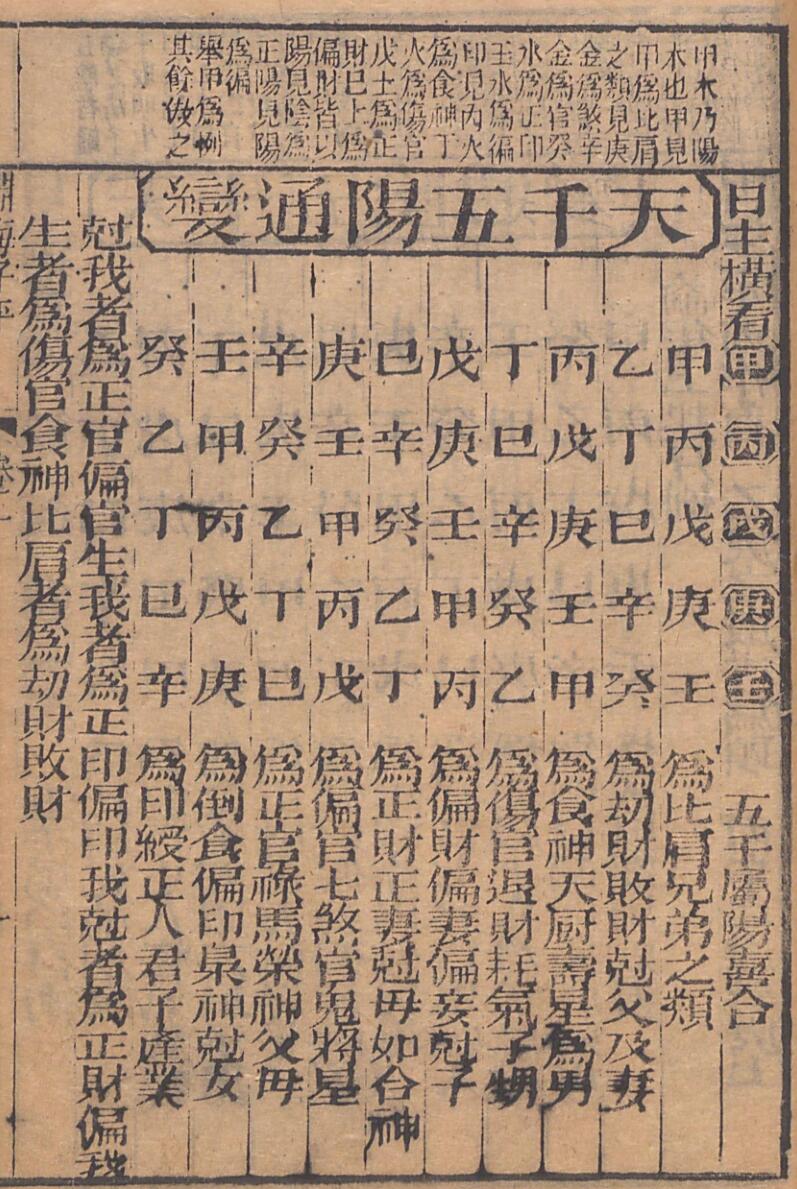 甲木乃陽
木也甲見
甲爲比肩
之類見庚
金爲煞辛
金爲官癸
水爲正印
壬水爲徧
印見丙火
爲食神丁
火爲傷官
戊土爲正
財巳上爲
偏財皆以
陽見陰爲
正陽見陽
爲徧
舉甲爲例
其餘倣之
天干五陽通變
日主橫看甲丙戊庚壬 五干屬陽喜合
甲丙戊庚壬爲比肩兄弟之類
乙丁巳辛癸爲劫財敗財尅父及妻
丙戊庚壬甲爲食神天厨壽星爲男
丁巳辛癸乙爲傷官退財耗氣子甥
戊庚壬甲丙爲偏財偏妻偏妾尅子
巳辛癸乙丁爲正財正妻尅母如合神
庚壬甲丙戊爲偏官七煞官鬼將星
辛癸乙丁巳爲正官祿馬榮神父母
壬甲丙戊庚爲倒食偏印梟神尅女
癸乙丁巳辛爲印綬正人君子產業
尅我者爲正官偏官生我者爲正印偏印我尅者爲正財偏我
生者爲傷官食神比肩者爲劫財敗財